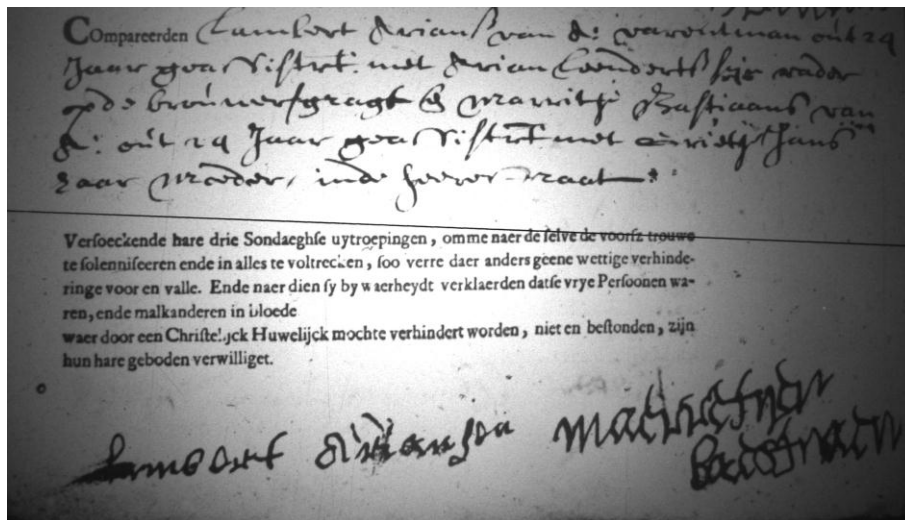 Compareerden Lambert Arians van A: varentman out 29
Jaar geassisteert met Arian Leenderts sijn vader
op de brouwersgragt & Marritje Bastiaans van
A: out 29 Jaar geassisteert met Jans
haar moeder, inde heere straat
Versoeckende hare drie Sondaeghse uytroepingen, omme naer de selve de voorsz trouwe
te solenniseeren ende in alles te voltrecken, soo verre daer anders geene wettige verhinde-
ringe voor en valle. Ende naer dien sy by waerheydt verklaerden datse vrye Persoonen wa-
ren, ende malkanderen in bloede
waer door een Christelijck Huwelijck mochte verhindert worden, niet en bestonden, zijn
hun hare geboden verwilliget.
Lambert Ariansen
Bastiaen